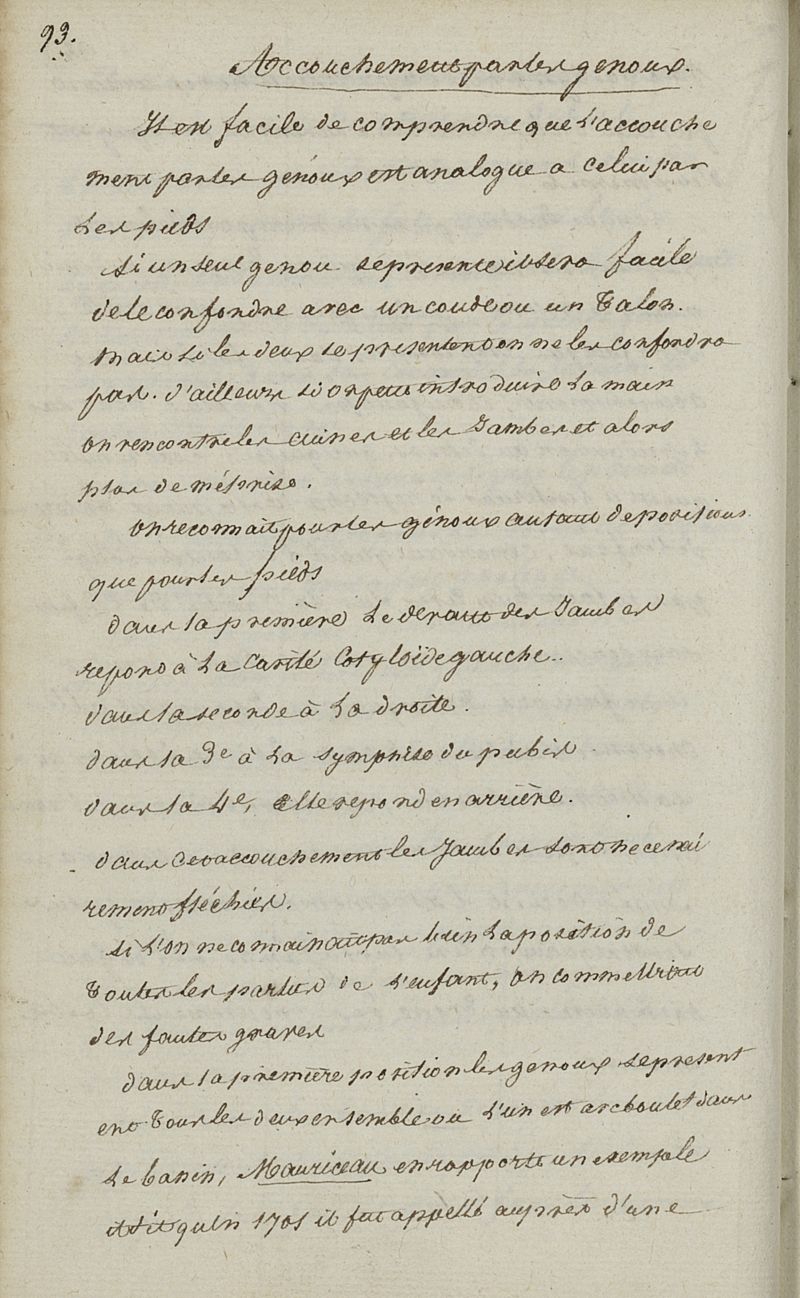 93.
Accouchement par les genoux.
Il est facile de comprendre que l'accouche
ment par les génoux est analogue a celui par
les pieds
Si un seul genou se presente il sera facile
de le confondre avec un coude ou un talon.
mais si les deux se presentent on ne les confondra
pas. d'ailleurs si on peut introduire la main
on rencontre les cuisses et les Jambes et alors
plus de méprise.
on reconnait pour les génoux autant de positions
que pour les pieds
dans la première le devant des Jambes
repond à la cavité Cotyloïde gauche..
dans la seconde à la droite.
dans la 3e à la symphise du pubis
dans la 4e, elle repond en arrière.
dans cet accouchement les Jambes sont necessai
rement fléchies.
Si l'on ne connaissait pas bien la position de
toutes les parties de l'enfant, on commettrait
des fautes graves
dans la première position les genoux se present
ent tous les deux ensemble ou l'un est arcbouté dans
le bassin, Mauriceau en rapporte un exemple
il dit qu'en 1701 il fut appellé auprès d'une